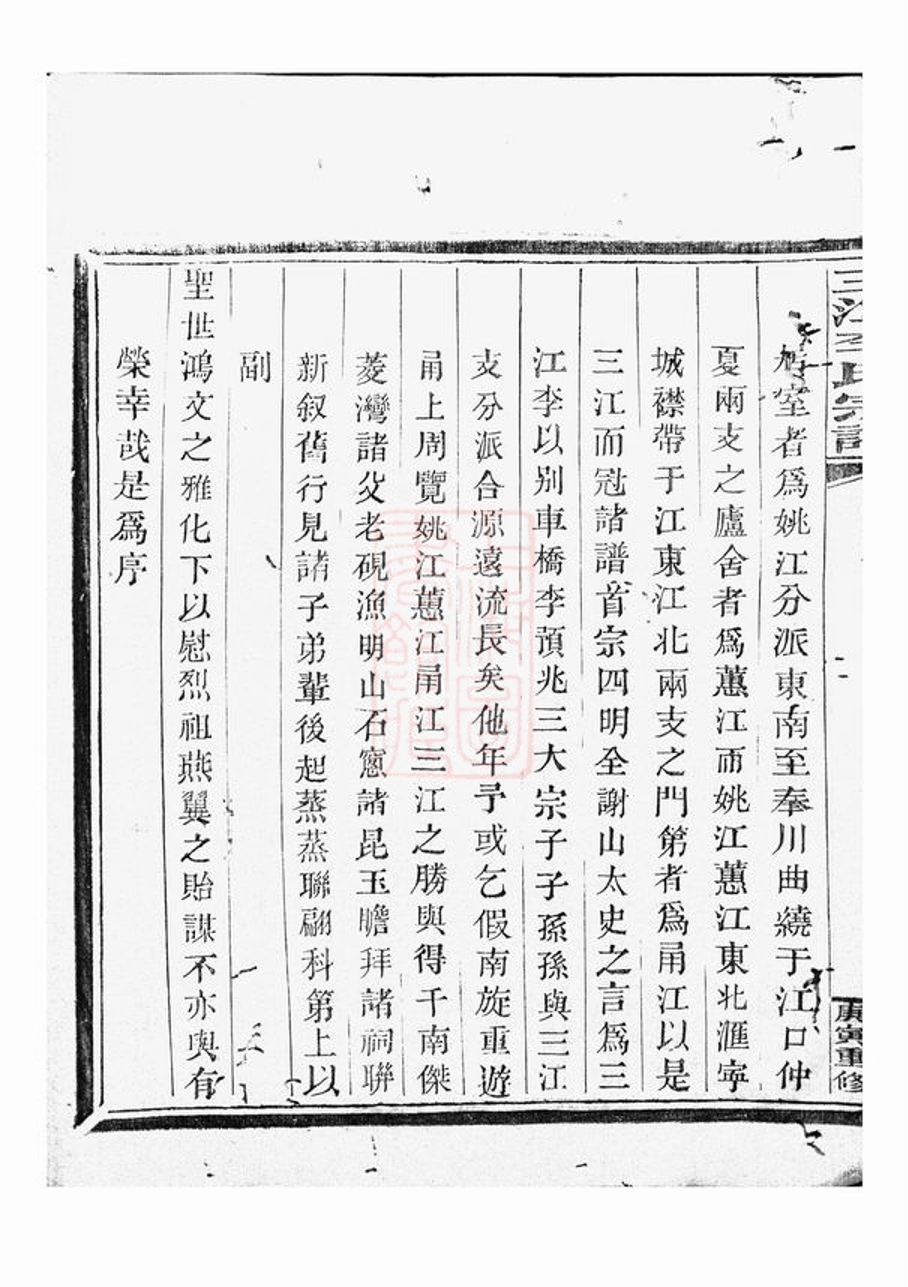 三江李氏宗譜
居室者爲姚江分派東南至奉川曲繞于江口仲
夏兩支之廬舍者爲蕙江而姚江蕙江東北滙寧
城襟帶于江東江北兩支之門第者爲甬江以是
三江而冠諸譜首宗四明全謝山太史之言爲三
江李以别車橋李預兆三大宗子子孫孫與三江
支分派合源遠流長矣他年予或乞假南旋重遊
甬上周覽姚江蕙江甬江三江之勝與得千南傑
菱灣諸父老硯漁明山石窻諸昆玉瞻拜諸祠聨
新叙舊行見諸子弟輩後起蒸蒸聯翩科第上以
副
聖世鴻文之雅化下以慰烈祖燕翼之貽謀不亦與有
榮幸哉是爲序
庚寅重修